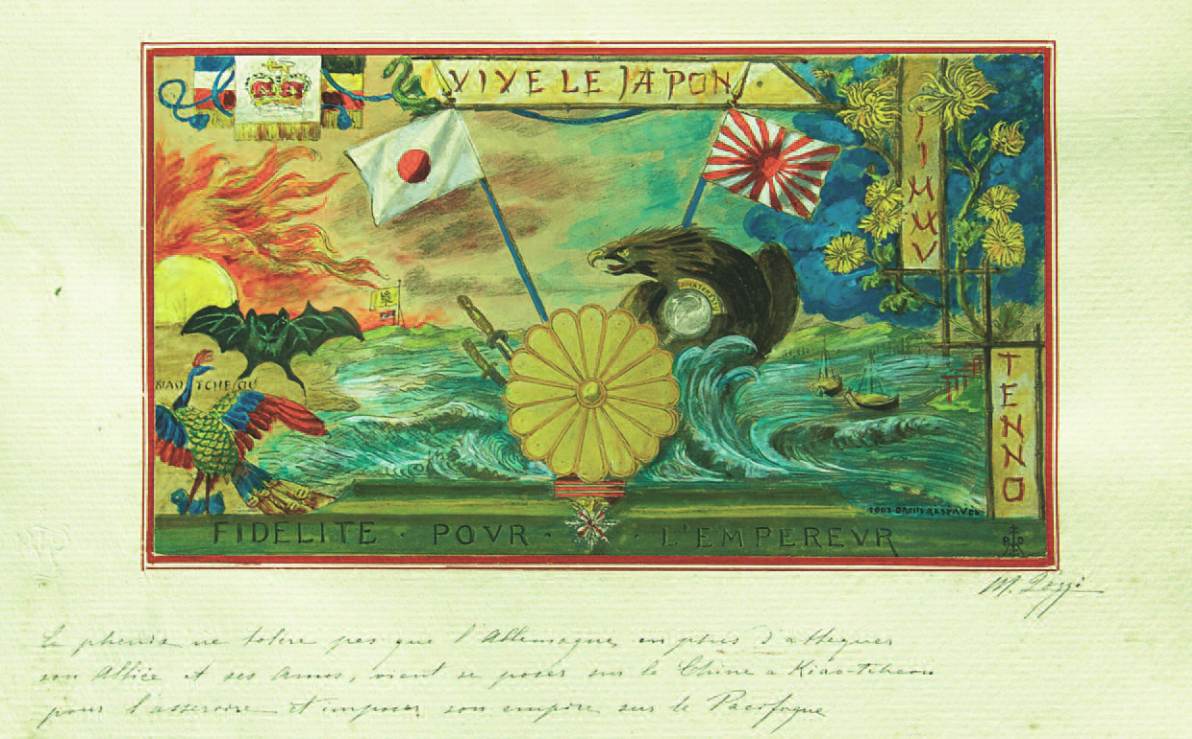 VIVE LE JAPON
JIMMV
TENNO
KIAO TCHEOU
FIDELITE · POVR · L'EMPEREVR
M. Pozzi
Le phenix ne tolère pas que l'Allemagne, en plus d'attaquer
son Alliée et ses amis, vient se poser sur la Chine a Kiao-tcheou
pour l'asservire et imposer son empire sur le Pacifique